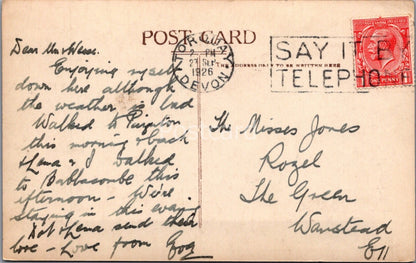 POST CARD
THE ADDRESS ONLY TO BE WRITTEN HERE
TORQUAY
2 - PM
27 SEP
1926
DEVON
SAY IT BY
TELEPHONE
Dear Mr
Enjoying myself
down here although
the weather is bad
Walked to Paignton
this morning & back
Lena & I walked
to Babbacombe this
afternoon - We're
staying in this evening
Lena send their
love - Love from
The Misses Jones
Rozel
The Green
Wanstead
E11